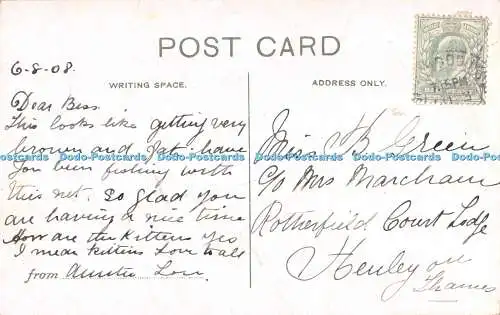 POST CARD
6-8-08.
WRITING SPACE.
ADDRESS ONLY.
Dear Bess
This looks like getting very
brown and fat have
you been fishing with
this net. So glad you
are having a nice time
How are the Kittens yes
I mean kittens Love to all
from Auntie Lou
Miss B Green
C/o Mrs Marcham
Rotherfield Court Lodge
Henley on
Thames
Dodo-Postcards Dodo-Postcards Dodo-Postcards Dodo-Postcards Dodo-Postcards